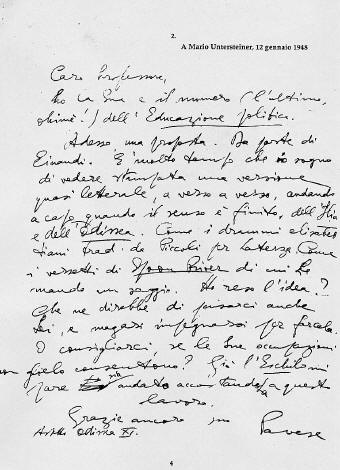 2.
A Mario Untersteiner, 12 gennaio 1948
Caro Professore,
ho la Sua e il numero (l'ultimo,
ohimè!) dell'Educazione politica.
Adesso, una proposta. Da parte di
Einaudi. È molto tempo che io sogno
di vedere stampata una versione
quasi letterale, a verso a verso, andando
a capo quando il senso è finito, dell'Iliade
e dell'Odissea. Come i drammi elisabet-
tiani trad. da Piccoli per Laterza. Come
i versetti di Spoon River di cui Le
mando un saggio. Ho reso l'idea?
Che ne direbbe di pensarci anche
Lei, e magari impegnarsi per farcela.
O consigliarci, se le Sue occupazioni
non glielo consentono? Già l'Eschilo mi
pare sia andato accostandosi a questo
lavoro.
Grazie ancora suo
Pavese
Odissea XI.
4